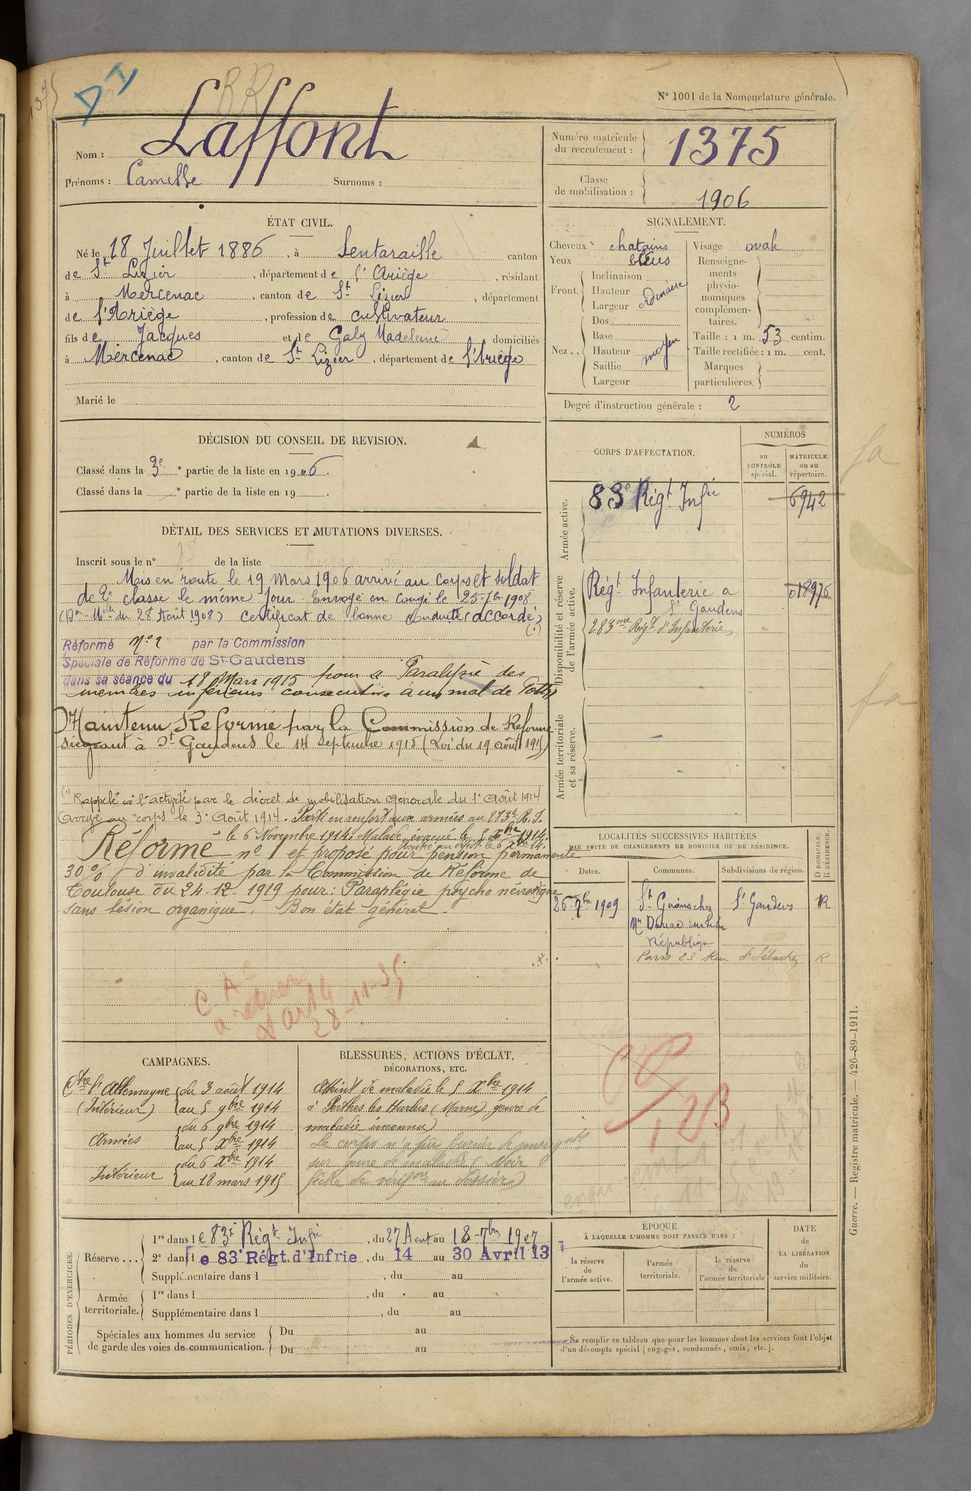 N° 1001 de la Nomenclature générale.
1375
Nom : Laffont
Prénoms : Camille Surnoms :
Numéro matricule du recrutement : 1375
Classe de mobilisation : 1906
ÉTAT CIVIL.
Né le 18 Juillet 1886, à Sentaraille canton
de St Lizier, département de l'Ariège, résidant
à Mercenac, canton de St Lizier, département
de l'Ariège, profession de cultivateur
fils de Jacques et de Galy Madeleine domiciliés
à Mercenac, canton de St Lizier, département de l'Ariège
Marié le
SIGNALEMENT.
Cheveux chatains
Yeux bleus
Front. Inclinaison
Hauteur
Largeur
ordinaire
Nez .. Dos
Base
Hauteur
Saillie
Largeur
moyen
Visage ovale
Renseignements physionomiques complémentaires.
Taille : 1 m. 53 centim.
Taille rectifiée : 1 m. cent.
Marques particulières.
Degré d'instruction générale : 2
DÉCISION DU CONSEIL DE REVISION.
Classé dans la 3e partie de la liste en 1906.
Classé dans la e partie de la liste en 19 .
DÉTAIL DES SERVICES ET MUTATIONS DIVERSES.
Inscrit sous le n° de la liste
Mis en route le 19 Mars 1906 arrivé au corps et soldat
de 2e classe le même jour Envoyé en congé le 25-7bre 1908
(Don Mlle du 28 Août 1908) Certificat de bonne conduite (accordé)
(1)
Réformé N°2 par la Commission
Spéciale de Réforme de St-Gaudens
dans sa séance du 18 Mars 1915 pour " Paralysie des
membres inférieurs consécutive à un mal de Pott"
Maintenu Réformé par la Commission de Réforme
siégeant à St Gaudens le 14 Septembre 1915 (Loi du 19 août 1915)
(1) Rappelé à l'activité par le décret de mobilisation générale du 1er Août 1914
Arrivé au corps le 3 Août 1914. Parti en renfort aux armées au 283e R.I.
le 6 Novembre 1914. Malade évacué le 5 Xbre 1914.
Réformé n° 1 et proposé pour pension permanente
30 % d'invalidité par la Commission de Réforme de
Toulouse du 24.12.1919 pour : Paraplégie psycho névrosique
sans lésion organique. Bon état général.
28-11-35
CORPS D'AFFECTATION.
NUMÉROS
au CONTRÔLE spécial.
MATRICULE ou au répertoire.
Armée active.
83e Régt Infie 6942
Disponibilité et réserve de l'armée active.
Régt Infanterie à St Gaudens 018976
283me Régt d'Infanterie
Armée territoriale et sa réserve.
LOCALITÉS SUCCESSIVES HABITÉES
PAR SUITE DE CHANGEMENTS DE DOMICILE OU DE RÉSIDENCE.
Dates.
Communes.
Subdivisions de région.
D DOMICILE. R RÉSIDENCE.
26-7bre 1909 St Gaudens R
République
Paris 23 Rue St Sébastien R
CAMPAGNES.
Ctre l'Allemagne du 3 août 1914
(Intérieur) au 5 9bre 1914
Armées du 6 9bre 1914
au 5 Xbre 1914
Intérieur du 6 Xbre 1914
au 18 mars 1915
BLESSURES, ACTIONS D'ÉCLAT,
DÉCORATIONS, ETC.
Atteint de maladie le 5 Xbre 1914
à Perthes les Hurlus (Marne) genre de
maladie inconnu)
PÉRIODES D'EXERCICES.
Réserve...
1re dans le 83e Régt Infie, du 27 Aout au 18-7bre 1907
2e dans le 83 Régt. d'Infrie, du 14 au 30 Avril 13
Supplémentaire dans l , du au
Armée territoriale.
1re dans l , du au
Supplémentaire dans l , du au
Spéciales aux hommes du service de garde des voies de communication.
Du au
Du au
ÉPOQUE
À LAQUELLE L'HOMME DOIT PASSER DANS :
la réserve de l'armée active.
l'armée territoriale.
la réserve de l'armée territoriale
DATE DE LA LIBÉRATION du service militaire.
Ne remplir ce tableau que pour les hommes dont les services font l'objet
d'un décompte spécial (engagés, condamnés, omis, etc.).
Guerre. — Registre matricule. 426-89-1911.